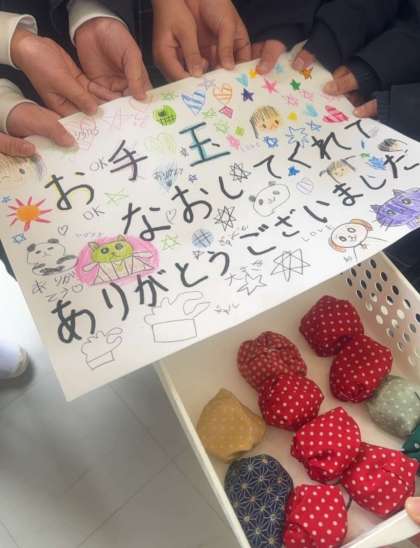 お手玉
なおしてくれて
ありがとうございました
OK
OK